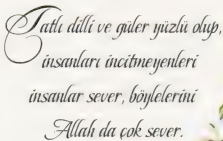 Tatlı dilli ve güler yüzlü olup,
insanları incitmeyenleri
insanlar sever, böylelerini
Allah da çok sever.